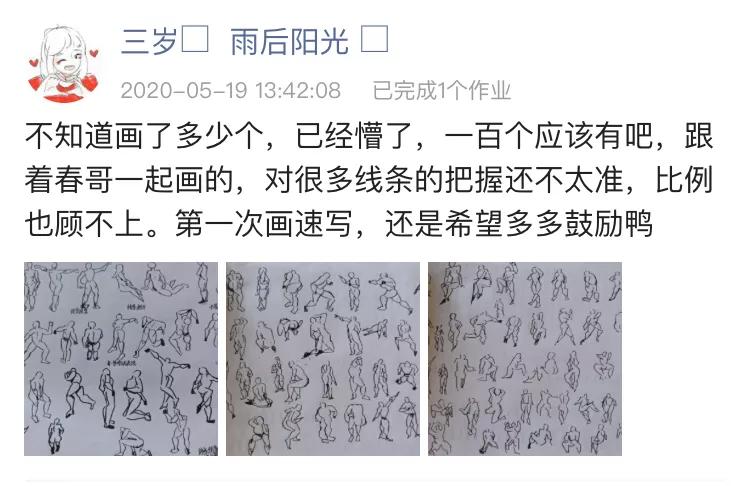 三岁□ 雨后阳光 □
2020-05-19 13:42:08 已完成1个作业
不知道画了多少个，已经懵了，一百个应该有吧，跟
着春哥一起画的，对很多线条的把握还不太准，比例
也顾不上。第一次画速写，还是希望多多鼓励鸭